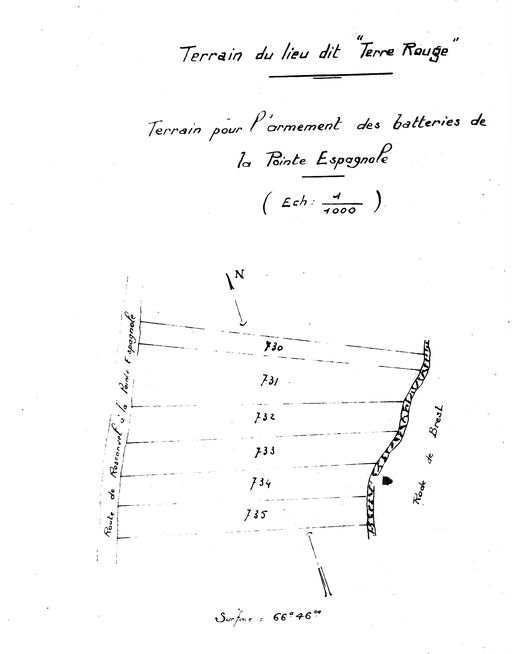 Terrain du lieu dit "Terre Rouge"
Terrain pour l'armement des batteries de
la Pointe Espagnole
( Ech: 1/1000 )
N
Route de Roscanvel à la Pointe Espagnole
730
731
732
733
734
735
Rade de Brest
Surface = 66ᵃ 46ᶜᵃ